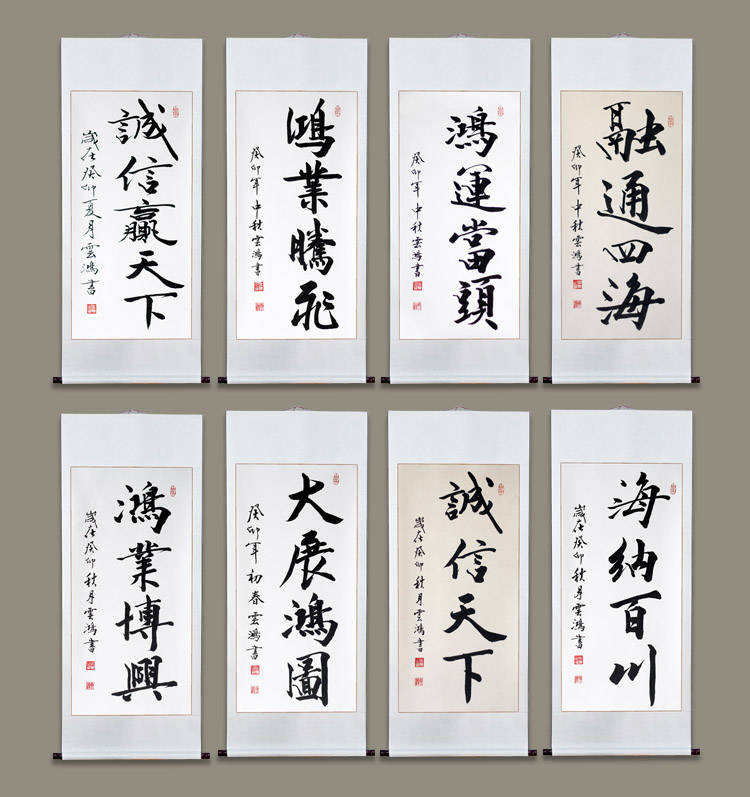 誠信贏天下
歲在癸卯夏月雲鴻書
鴻業騰飛
癸卯年中秋雲鴻書
鴻運當頭
癸卯年中秋雲鴻書
融通四海
癸卯年中秋雲鴻書
鴻業博興
歲在癸卯秋月雲鴻書
大展鴻圖
癸卯年初春雲鴻書
誠信天下
歲在癸卯秋月雲鴻書
海納百川
歲在癸卯秋月雲鴻書